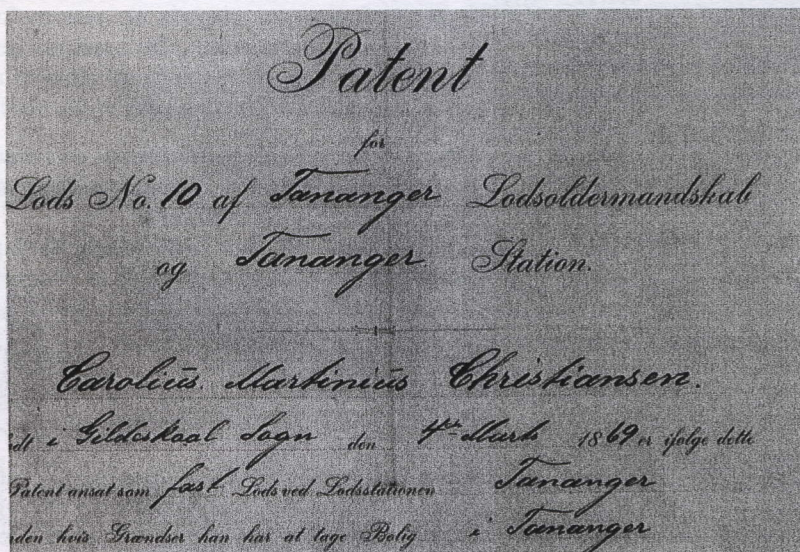 Patent
for
Lods No. 10 af Tananger Lodsoldermandskab
og Tananger Station.
Carolius Martinius Christiansen.
ødt i Gildeskaal Sogn den 4de Marts 1869 er ifølge dette
Patent ansat som fast Lods ved Lodsstationen Tananger
nden hvis Grændser han har at tage Bolig i Tananger